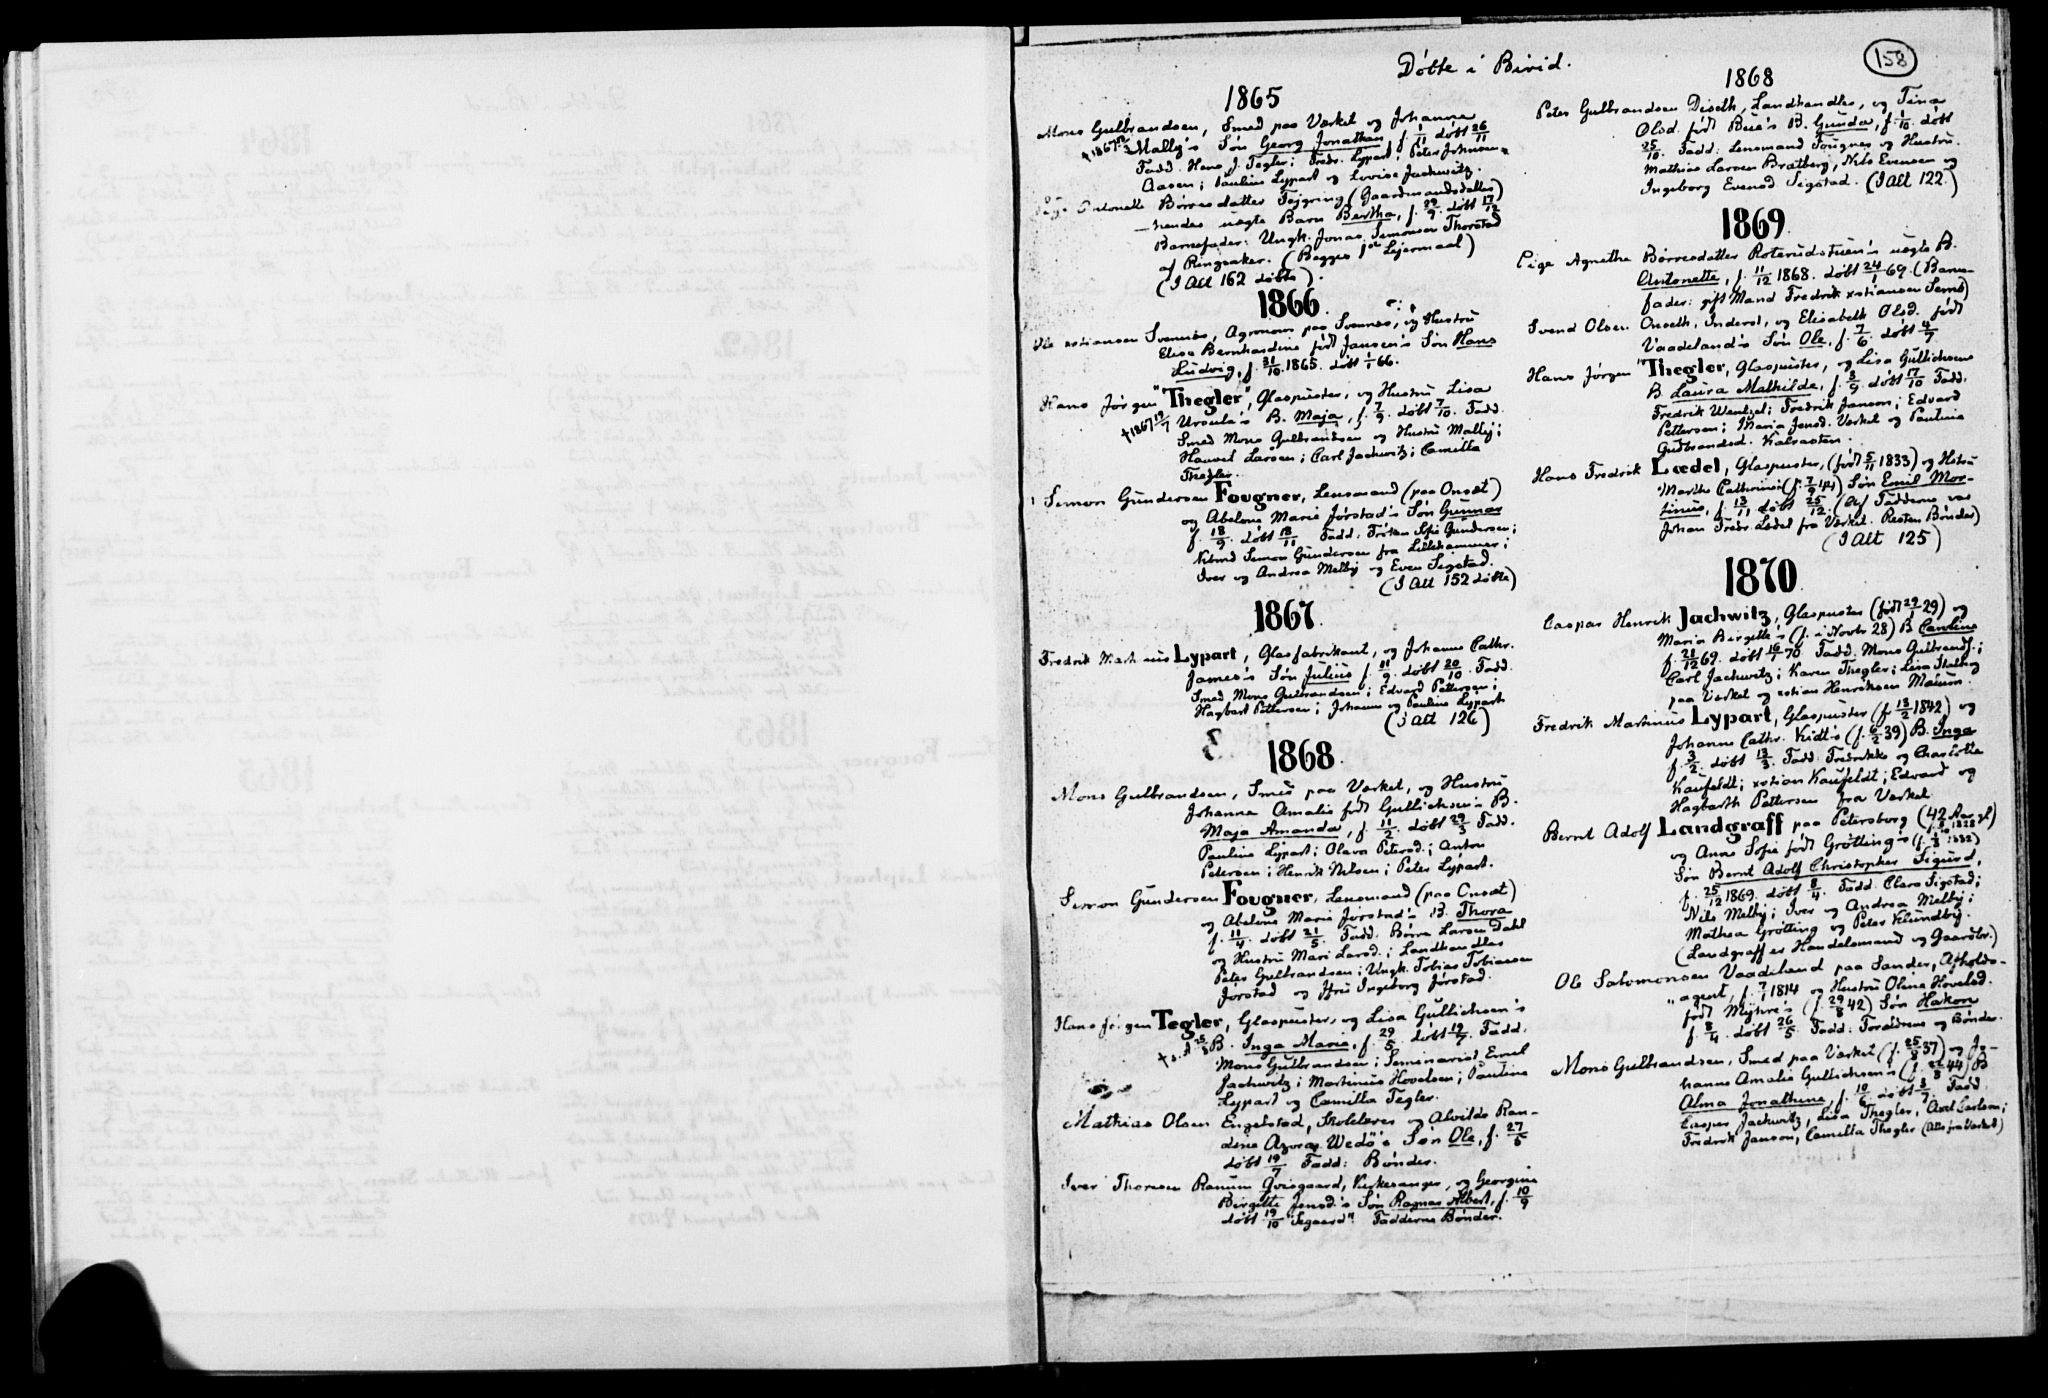 158
Døbte i Birid.
1865
Mons Gulbrandsen, Smed paa Værket og Johanna
Mally's Søn Georg Jonathan f. 1/11 døbt 26/11
†1867
Fadd. Hans J. Tegler; Fredr. Lypart; Peter Johnsen
Aasen; Pauline Lypart og Lovise Jachwitz.
Pige Antonette Børresdatter Fejgring (Gaardmandsdatter)
hendes uægte Barn Bertha, f. 29/9. døbt 17/12
Barnefader: Ungk. Jonas Simonsen Thorstad
af Ringsaker. (Begges 1ste Lejermaal)
(I Alt 162 døbte).
1866
Ole xstiansen Svennes, Agronom paa Svennes, og Hustru
Elise Bernhardine født Jansen's Søn Hans
Ludvig, f. 31/10. 1865. døbt 1/1 66.
Hans Jørgen "Thegler", Glaspuster, og Hustru Lisa
†1867 19/7 Ursula's B. Maja, f. 7/9. døbt 7/10. Fadd.
Smed Mons Gulbrandsen og Hustru Mally;
Hauvel Larsen; Carl Jachwitz; Camilla
Thegler.
Simon Gundersen Fougner, Lensmand (paa Onsæt)
og Abelone Marie Jørstad's Søn Gunnar
f. 18/9. døbt 18/11 Fadd. Frøken Sofie Gundersen;
Kbmd Simon Gundersen fra Lillehammer;
Iver og Andrea Melby og Even Segstad.
(I Alt 152 døbte)
1867
Fredrik Martinius Lypart, Glasfabrikant, og Johanne Cathr.
James's Søn Julius f. 11/9. døbt 20/10. Fadd.
Smed Mons Gulbrandsen; Edvard Pettersen;
Hagbart Pettersen; Johanne og Pauline Lypart
(i Alt 126)
1868
Mons Gulbrandsen, Smed paa Værket, og Hustru
Johanna Amalie født Gullichsen's B.
Maja Amanda, f. 11/2. døbt 29/3 Fadd.
Pauline Lypart; Olava Petersd.; Anton
Petersen; Henrik Nilsen; Peter Lypart.
Simon Gundersen Fougner, Lensmand (paa Onsæt)
og Abelone Marie Jørstad's B. Thora
f. 11/4. døbt 21/5. Fadd. Børre Larsen Dahl
og Hustru Mari Larsd.; Landhandler
Peter Gulbrandsen; Ungk. Tobias Tobiassen
Jørstad og Jfru Ingeborg Jørstad.
Hans Jørgen Tegler, Glaspuster, og Lisa Gullichsen's
B. Inga Maria, f. 29/5. døbt 19/7. Fadd.
Mons Gulbrandsen; Seminarist Emil
Jachwitz; Martinius Hovelsen; Pauline
Lypart og Camilla Tegler.
Mathias Olsen Engelstad, Skolelærer og Alvilde Ran-
dine Wedø's Søn Ole, f. 27/5
døbt 19/7 Fadd: Bønder.
Iver Thorsen Ranum Qvisgaard, Kirkesanger, og Georgine
Birgitte Jensd's Søn Ragnar Albert, f. 10/9
døbt 19/10 "Segaard". Fadderne Bønder.
1868
Peter Gulbrandsen Diseth, Landhandler, og Tina
Olsd. født Bue's B. Gunda, f. 1/10. døbt
25/10. Fadd: Lensmand Fougner og Hustru.
Mathias Larsen Bratberg, Nils Evensen og
Ingeborg Evensd Segstad. (I Alt 122.)
1869
Pige Agnethe Børresdatter Roterudstuen's uægte B.
Antonette, f. 11/12 1868. døbt 24/1 69. (Barne-
fader: gift Mand Fredrik xstiansen Semb)
Svend Olsen Onseth, Inderst, og Elisabeth Olsd. født
Vaadeland's Søn Ole, f. 7/6. døbt 4/7
Hans Jørgen "Thegler, Glaspuster, og Lisa Gullichsens
B. Laura Mathilde, f. 3/9. døbt 17/10 Fadd.
Fredrik Wentzel; Fredrik Janson; Edvard
Pettersen; Maria Jensd. Værket og Pauline
Gudbrandsd. Kalrasten.
Hans Fredrik Lædel, Glaspuster, (født 5/11 1833) og Hstru
Marthe Cathrine's (f. 7/9 44) Søn Emil Mar-
tinius, f. 13/11 døbt 25/12. (Af Fadderne var
Johan Fredr. Ledel fra Værket. Resten Bønder)
(I Alt 125)
1870
Caspar Henrik Jachwitz, Glaspuster (født 29/1 29) og
Maria Birgitte's (f. i Novbr 28) B Caroline
f. 21/12 69. døbt 16/1 70 Fadd. Mons Gulbrands.;
Carl Jachwitz; Karen Thegler; Lisa Stalberg
paa Værket og xstian Henriksen Mælum.
Fredrik Martinius Lypart, Glaspuster (f. 13/2 1842) og
Johanne Cathr. Kidt's (f. 6/2 39) B. Inga
f. 3/2. døbt 13/3. Fadd. Fredrikke og Charlotte
Kaufeldt; xstian Kaufeldt; Edvard og
Hagbarth Pettersen fra Værket.
Bernt Adolf Landgraff paa Petersborg (42 Aar gl)
og Anne Sofie født Grøtting's
Søn Bernt Adolf Christopher Sigurd,
f. 25/12 1869. døbt 8/4. Fadd. Clara Sigstad;
Nils Melby; Iver og Andrea Melby;
Mathea Grøtting og Peter Klundby.
(Landgraff er Handelsmand og Gaardbr.)
Ole Salomonsen Vaadeland paa Sander, Afholds-
agent, f. 7/1 1814 og Hustru Oline Hovelsd.
født Mythre's (f. 29/8 42) Søn Hakon
f. 8/4. døbt 26/5 Fadd: Forældrene og Bønder.
Mons Gulbrandsen, Smed paa Værket (f. 25/8 37) og Jo-
hanne Amalie Gullichsen's (f. 22/8 44) B
Alma Jonathine, f. 10/6. døbt 3/7. Fadd.
Caspar Jachwitz, Lisa Thegler, Axel Carlsen;
Fredrik Janson, Camilla Thegler (Alle fra Værket)